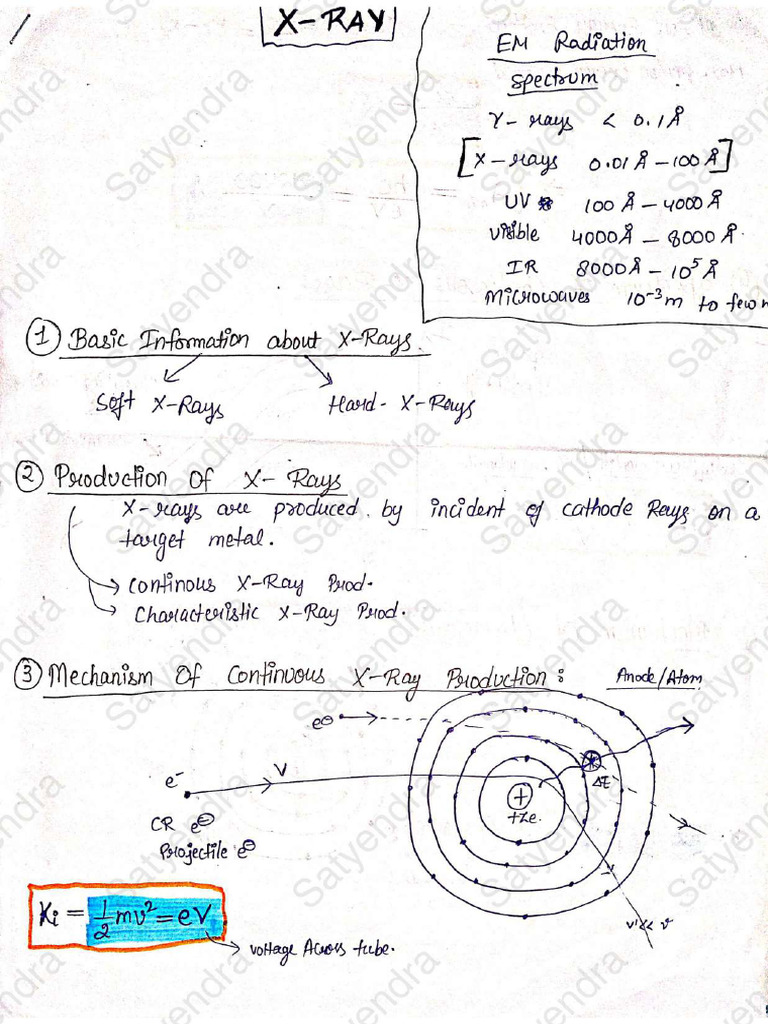 X-RAY
EM Radiation
spectrum
γ-rays < 0.1Å
[X-rays 0.01Å-100Å]
UV 100Å-4000Å
visible 4000Å-8000Å.
IR 8000Å-10⁵Å
Microwaves 10⁻³m to few
① Basic Information about X-Rays.
Soft X-Rays Hard-X-Rays
② Production Of X-Rays
X-rays are produced by incident of cathode Rays on a
target metal.
Continous X-Ray Prod.
Characteristic X-Ray Prod.
③ Mechanism Of Continuous X-Ray Production: Anode/Atom
e⊖
e⁻ V
ΔE
+
+ze.
CR e⊖
Projectile e⊖
Ki = 1/2 mv² = eV
v'<< v
voltage Across tube.
Satyendra